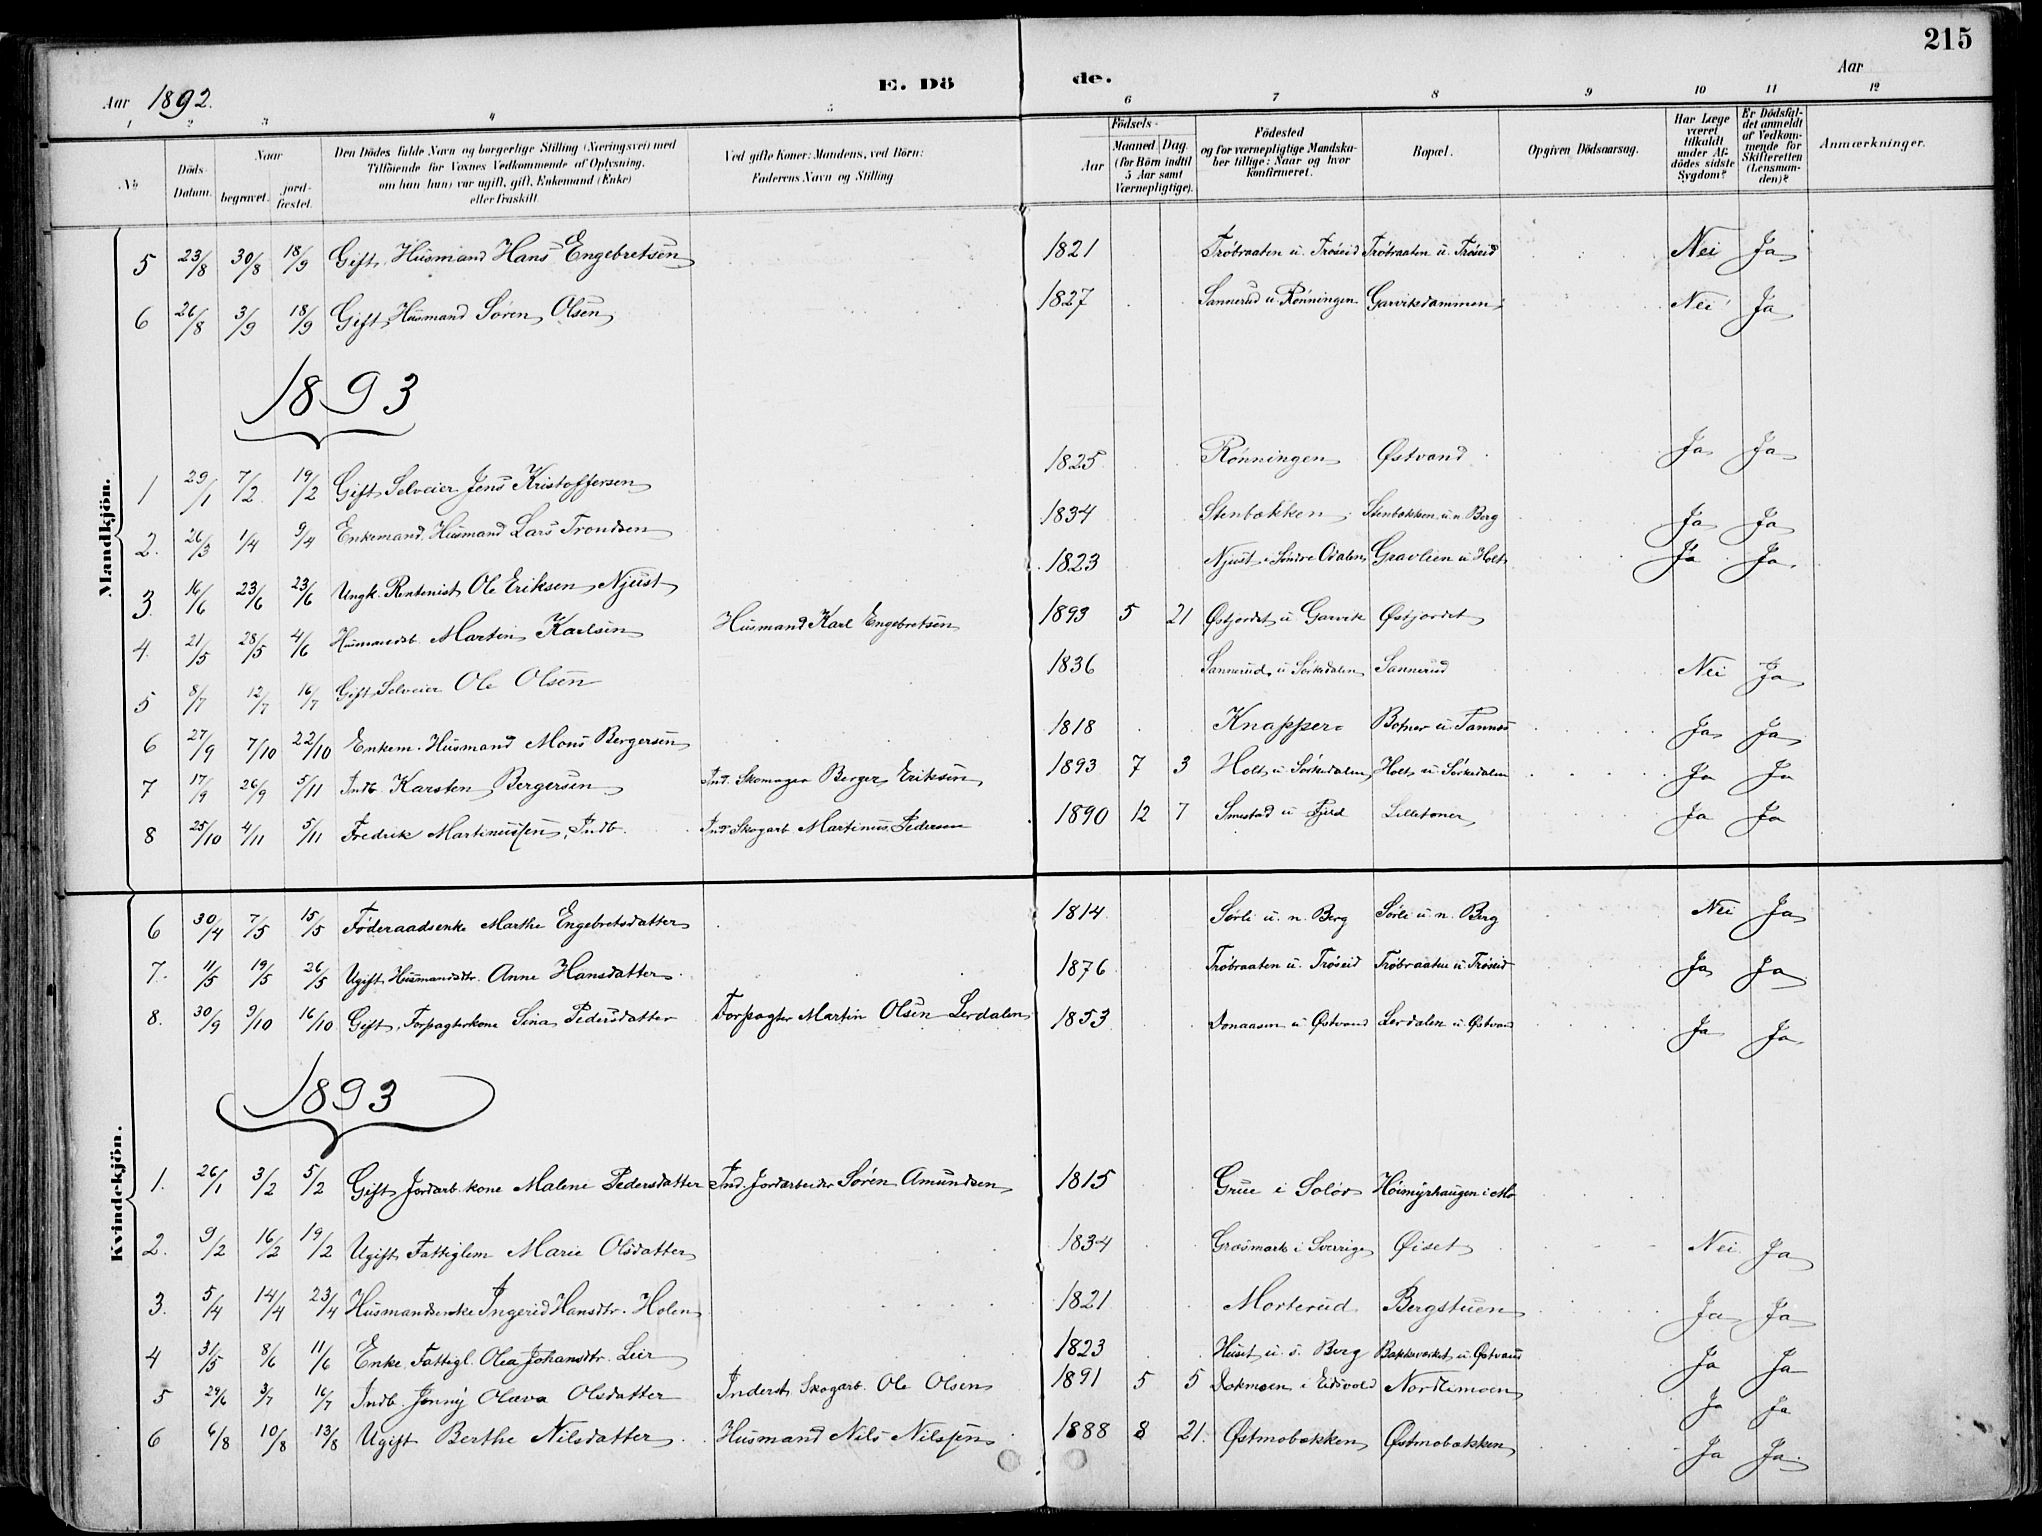 215
Aar 1892. E. Dö de. Aar
1 2 3 4 5 6 7 8 9 10 11 12
No Döds-Datum. Naar begravet. jord-fæstet. Den Dödes fulde Navn og borgerlige Stilling (Næringsvei) med Tilföiende for Voxnes Vedkommende af Oplysning, om han (hun) var ugift, gift, Enkemand (Enke) eller fraskilt. Ved gifte Koner: Mandens, ved Börn: Faderens Navn og Stilling Födsels- Aar Maaned. Dag. (for Börn indtil 5 Aar samt Værnepligtige). Födested og for værnepligtige Mandska-ber tillige: Naar og hvor konfirmeret. Bopæl. Opgiven Dödsaarsag. Har Læge været tilkaldt under Af-dödes sidste Sygdom? Er Dödsfal-det anmeldt af Vedkom-mende for Skifteretten (Lensman-den)? Anmærkninger.
Mandkjön.
5 23/8 30/8 18/9 Gift Husmand Hans Engebretsen 1821 Trøbraaten u. Trøseid Trøbraaten u. Trøseid Nei Ja
6 26/8 3/9 18/9 Gift Husmand Søren Olsen 1827 Sannerud u. Rønningen Garviksdammen Nei Ja
1893
1 29/1 7/2 19/2 Gift Selveier Jens Kristoffersen 1825 Rønningen Østvand Ja Ja
2. 26/3 1/4 9/4 Enkemand. Husmand Lars Trondsen 1834 Stenbakken Stenbakken u. n. Berg Ja Ja
3. 16/6 23/6 23/6 Ungk. Rentenist Ole Eriksen Njust 1823 Njust i Søndre Odalen Gravlien u Holt Ja Ja
4. 21/5 28/5 4/6 Husmandsb. Martin Karlsen Husmand Karl Engebretsen 1893 5 21 Østjordet u Garvik Østjordet
5 8/7 12/7 16/7 Gift Selveier Ole Olsen 1836 Sannerud u Sorkedalen Sannerud Nei Ja
6 27/9 7/10 22/10 Enkem. Husmand Mons Bergersen 1818 Knapper Botner u. Tannæs Ja Ja
7 17/9 26/9 5/11 Indb. Karsten Bergersen Ind. Skomager Berger Eriksen 1893 7 3 Holt u Sørkedalen Holt u Sørkedalen Ja Ja
8 25/10 4/11 5/11 Fredrik Martinussen, Indb. Ind Skogarb Martinus Pedersen 1890 12 7 Smestad u Fjeld Lilletoner Ja Ja
Kvindekjön.
6 30/4 7/5 15/5 Føderaadsenke Marthe Engebretsdatter 1814 Sørli u. n. Berg Sørli u. n. Berg Nei Ja
7. 11/5 19/5 26/5 Ugift Husmandsdtr. Anne Hansdatter 1876 Trøbraaten u. Trøseid Trøbraaten u Trøseid Ja Ja
8. 30/9 9/10 16/10 Gift, Forpagterkone Sina Pedersdatter Forpagter Martin Olsen Lerdalen 1853 Donaasen u Østvand Lerdalen u Østvand Ja Ja
1893
1. 26/1 3/2 5/2 Gift Jordarb. kone Maleni Pedersdatter Ind. Jordarbeider Søren Amundsen 1815 Grue i Solør Høimyrhaugen i Mo
2. 9/2 16/2 19/2 Ugift Fattiglem Marie Olsdatter 1834 Grasmark i Sverrige Øiset Nei Ja
3. 5/4 14/4 23/4 Husmandsenke Ingerid Hansdtr. Holen 1821 Morterud Bergstuen Ja Ja
4 31/5 8/6 11/6 Enke. Fattigl. Olea Johansdtr. Leir 1823 Huset u. s. Berg Bakkevæket u. Østvand Ja Ja
5 29/6 3/7 16/7 Indb. Jenny Olava Olsdatter Inderst Skogarb. Ole Olsen 1891 5 5 Dokmoen i Eidsvold Nordlimoen Ja Ja
6 6/8 10/8 13/8 Ugift Berthe Nilsdatter Husmand Nils Nilssen 1888 8 21. Østmobakken Østmobakken Ja Ja